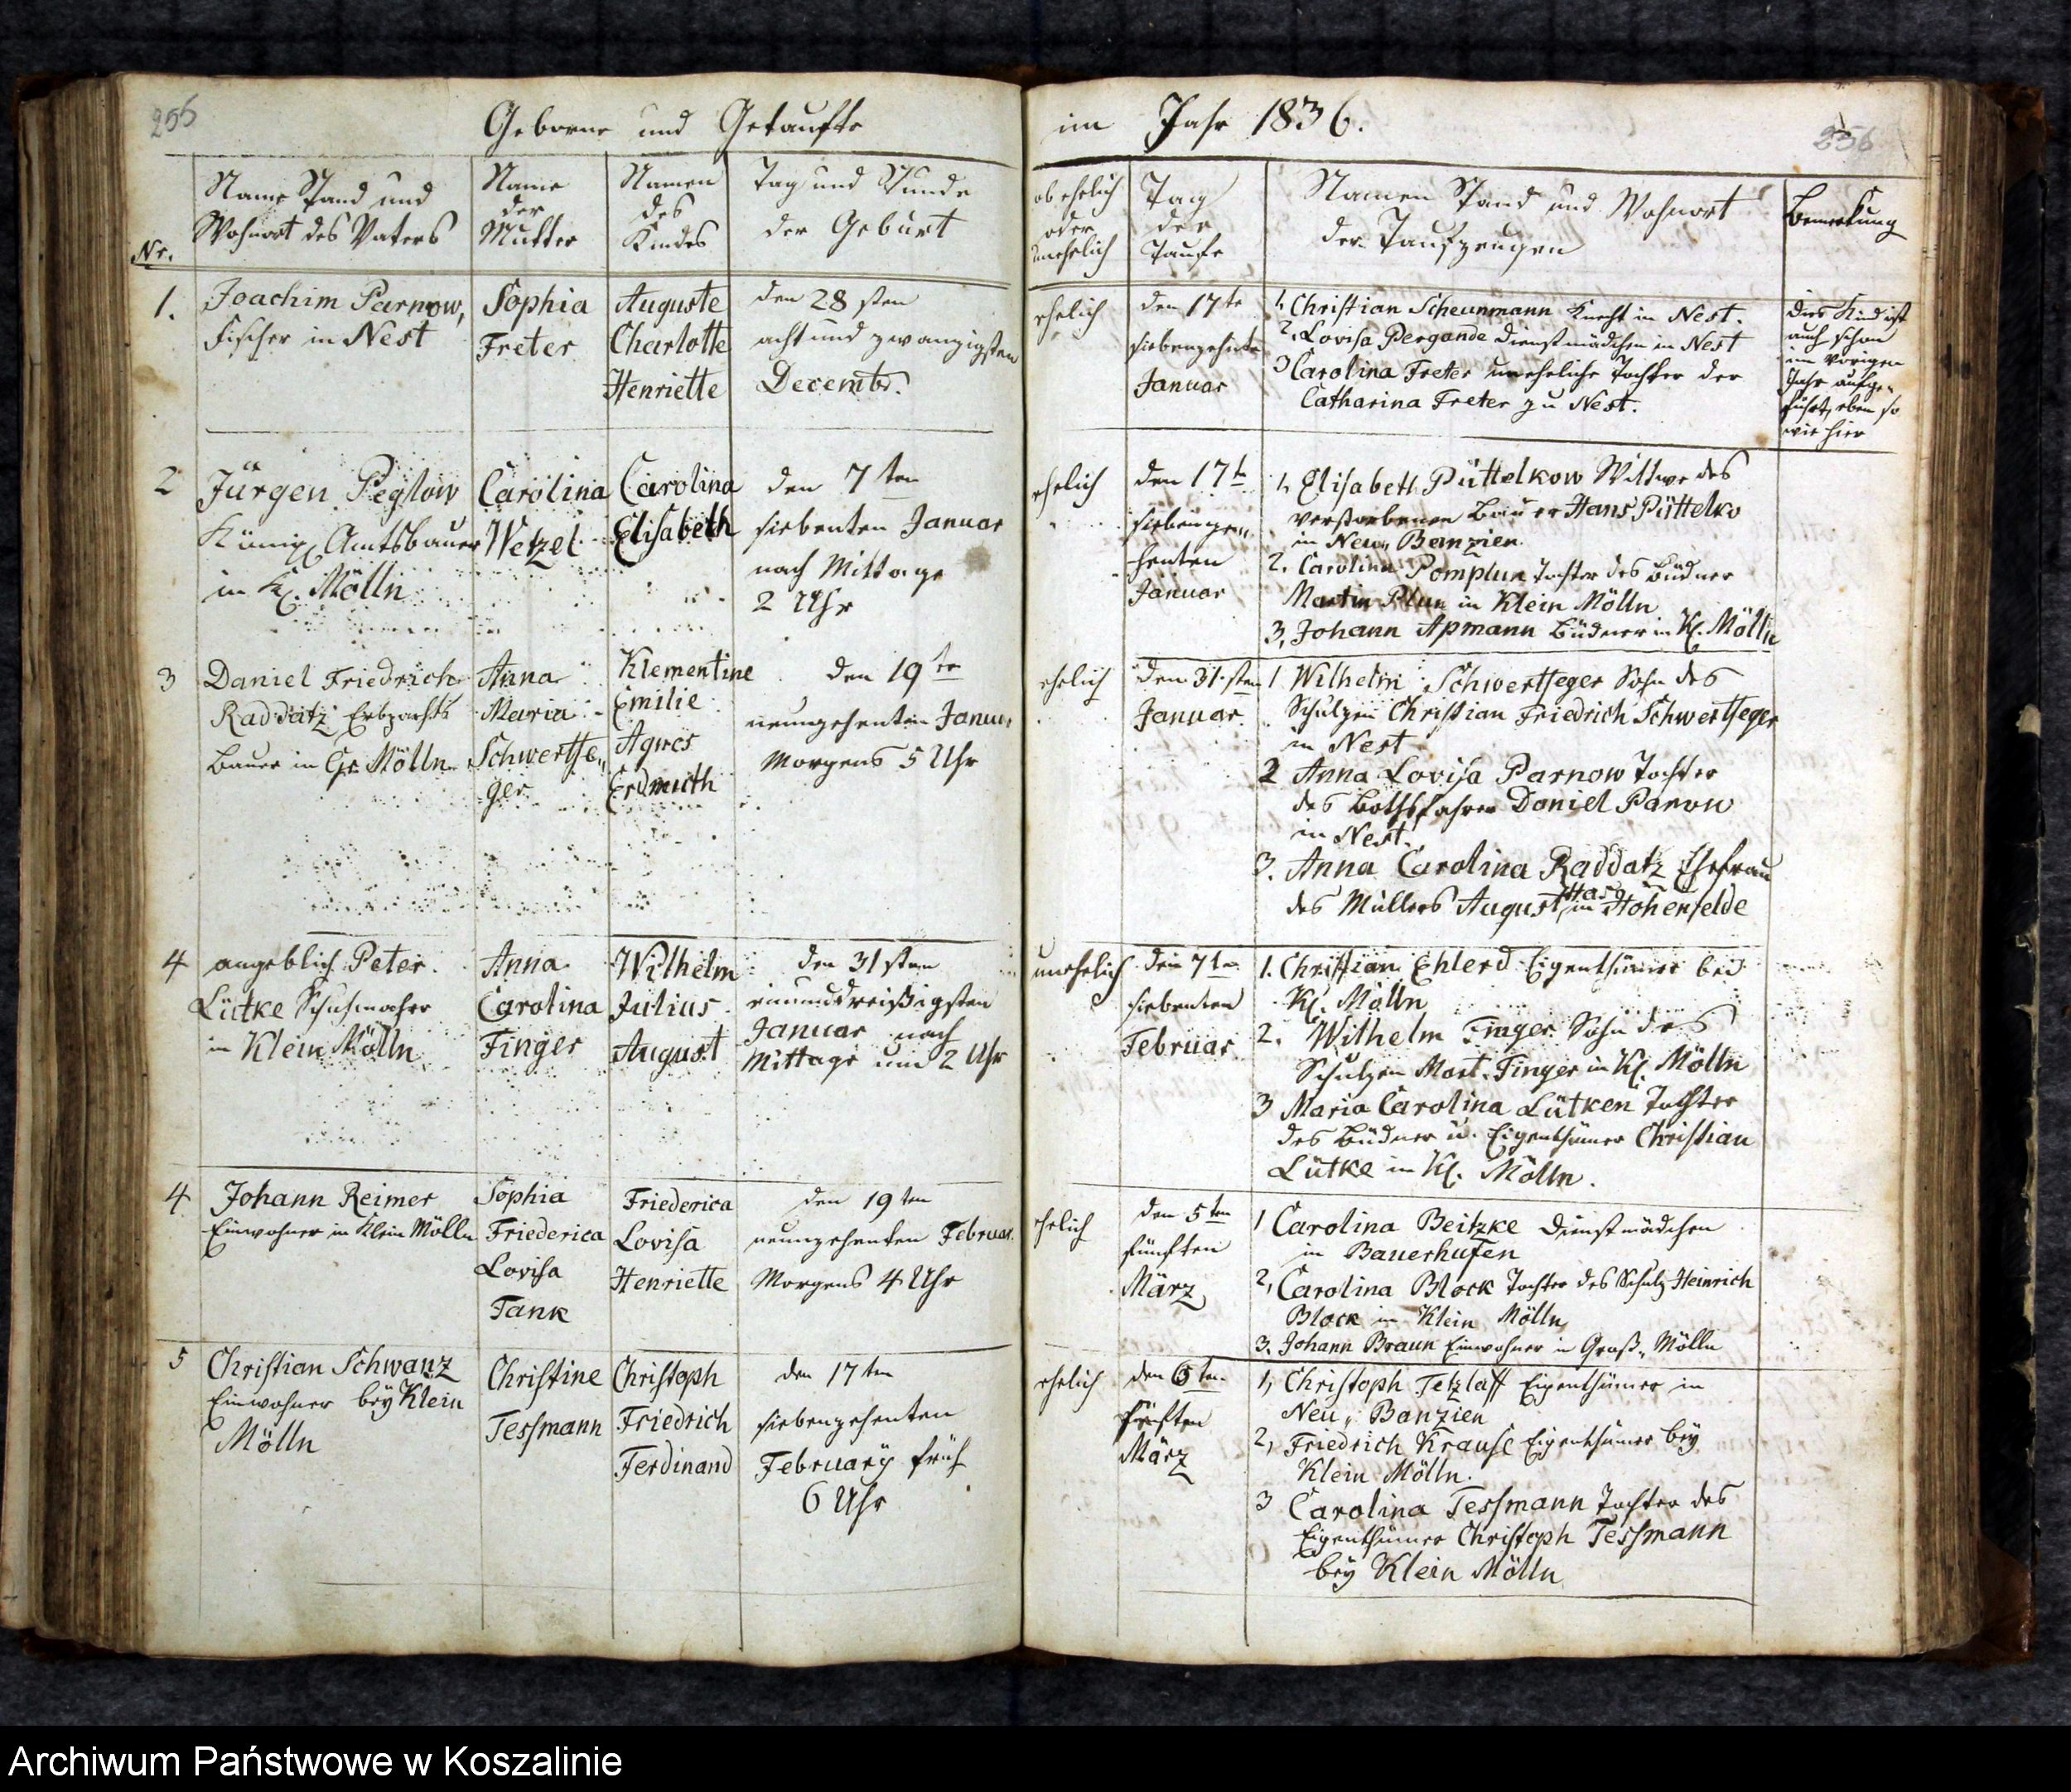 255
Geborne und Getaufte
Nr.
Name Stand und
Wohnort des Vaters
Name
der
Mutter
Namen
des
Kindes
Tag und Stunde
der Geburt
1.
Joachim Parnow,
Fischer in Nest
Sophia
Freter
Auguste
Charlotte
Henriette
den 28 sten
acht und zwanzigsten
Decembr.
2
Jürgen Peglow
Königl. Amtsbauer
in Kl. Mölln
Carolina
Wetzel
Carolina
Elisabeth
den 7 ten
siebenten Januar
nach Mittage
2 Uhr
3
Daniel Friedrich
Raddatz Erbpachts
Bauer in Gr. Mölln
Anna
Maria
Schwertfe„
ger
Klementine
Emilie
Agnes
Erdmuth
den 19 te
neunzehenten Januar
Morgens 5 Uhr
4
angeblich Peter
Lütke Schuhmacher
in Klein Mölln
Anna
Carolina
Finger
Wilhelm
Julius
August
den 31 sten
einunddreißigsten
Januar nach
Mittage um 2 Uhr
4
Johann Reimer
Einwohner in Klein Mölln
Sophia
Friederica
Lovisa
Tank
Friederica
Lovisa
Henriette
den 19 ten
neunzehenten Februar
Morgens 4 Uhr
5
Christian Schwanz
Einwohner bey Klein
Mölln
Christine
Tessmann
Christoph
Friedrich
Ferdinand
den 17 ten
siebenzehenten
February früh
6 Uhr
256
im Jahr 1836.
ob ehelich
oder
unehelich
Tag
der
Taufe
Namen Stand und Wohnort
der Taufzeugen
Bemerkung
ehelich
den 17 te
siebenzehnte
Januar
1, Christian Scheunmann Knecht in Nest.
2. Lovisa Pergande Dienstmädchen in Nest
3 Carolina Freter uneheliche Tochter der
Catharina Freter zu Nest.
Dies Kind ist
auch schon
im vorigen
Jahr aufge„
führt, eben so
wie hier
ehelich
den 17 t
siebenze„
henten
Januar
1, Elisabeth Püttelkow Wittwe des
verstorbenen Bauer Hans Püttelko
in Neu„ Banzien.
2. Carolina Pomplun Tochter des Büdner
Martin Plun in Klein Mölln
3, Johann Apmann Büdner in Kl. Mölln
ehelich
den 31. sten
Januar.
1 Wilhelm Schwertfeger Sohn des
Schulzen Christian Friedrich Schwertfeger
in Nest
2 Anna Lovisa Parnow Tochter
des Bothsfahrer Daniel Parow
in Nest.
3. Anna Carolina Raddatz Ehefrau
des Müllers August Hase in Hohenfelde
unehelich
den 7 ten
siebenten
Februar
1. Christian Ehlerd Eigenthümer bei
Kl. Mölln
2. Wilhelm Finger Sohn des
Schulzen Mart. Finger in Kl. Mölln
3 Maria Carolina Lütken Tochter
des Büdner u. Eigenthümer Christian
Lütke in Kl. Mölln.
ehelich
den 5 ten
fünften
März
1 Carolina Beitzke Dienstmädchen
in Bauerhufen
2, Carolina Block Tochter des Schulz Heinrich
Block in Klein Mölln
3. Johann Braun Einwohner in Groß„ Mölln
ehelich
den 6 ten
fünften
März
1, Christoph Tetzlaff Eigenthümer in
Neu„ Banzien
2, Friedrich Krause Eigenthümer bey
Klein Mölln.
3 Carolina Tessmann Tochter des
Eigenthümer Christoph Tessmann
bey Klein Mölln
Archiwum Państwowe w Koszalinie